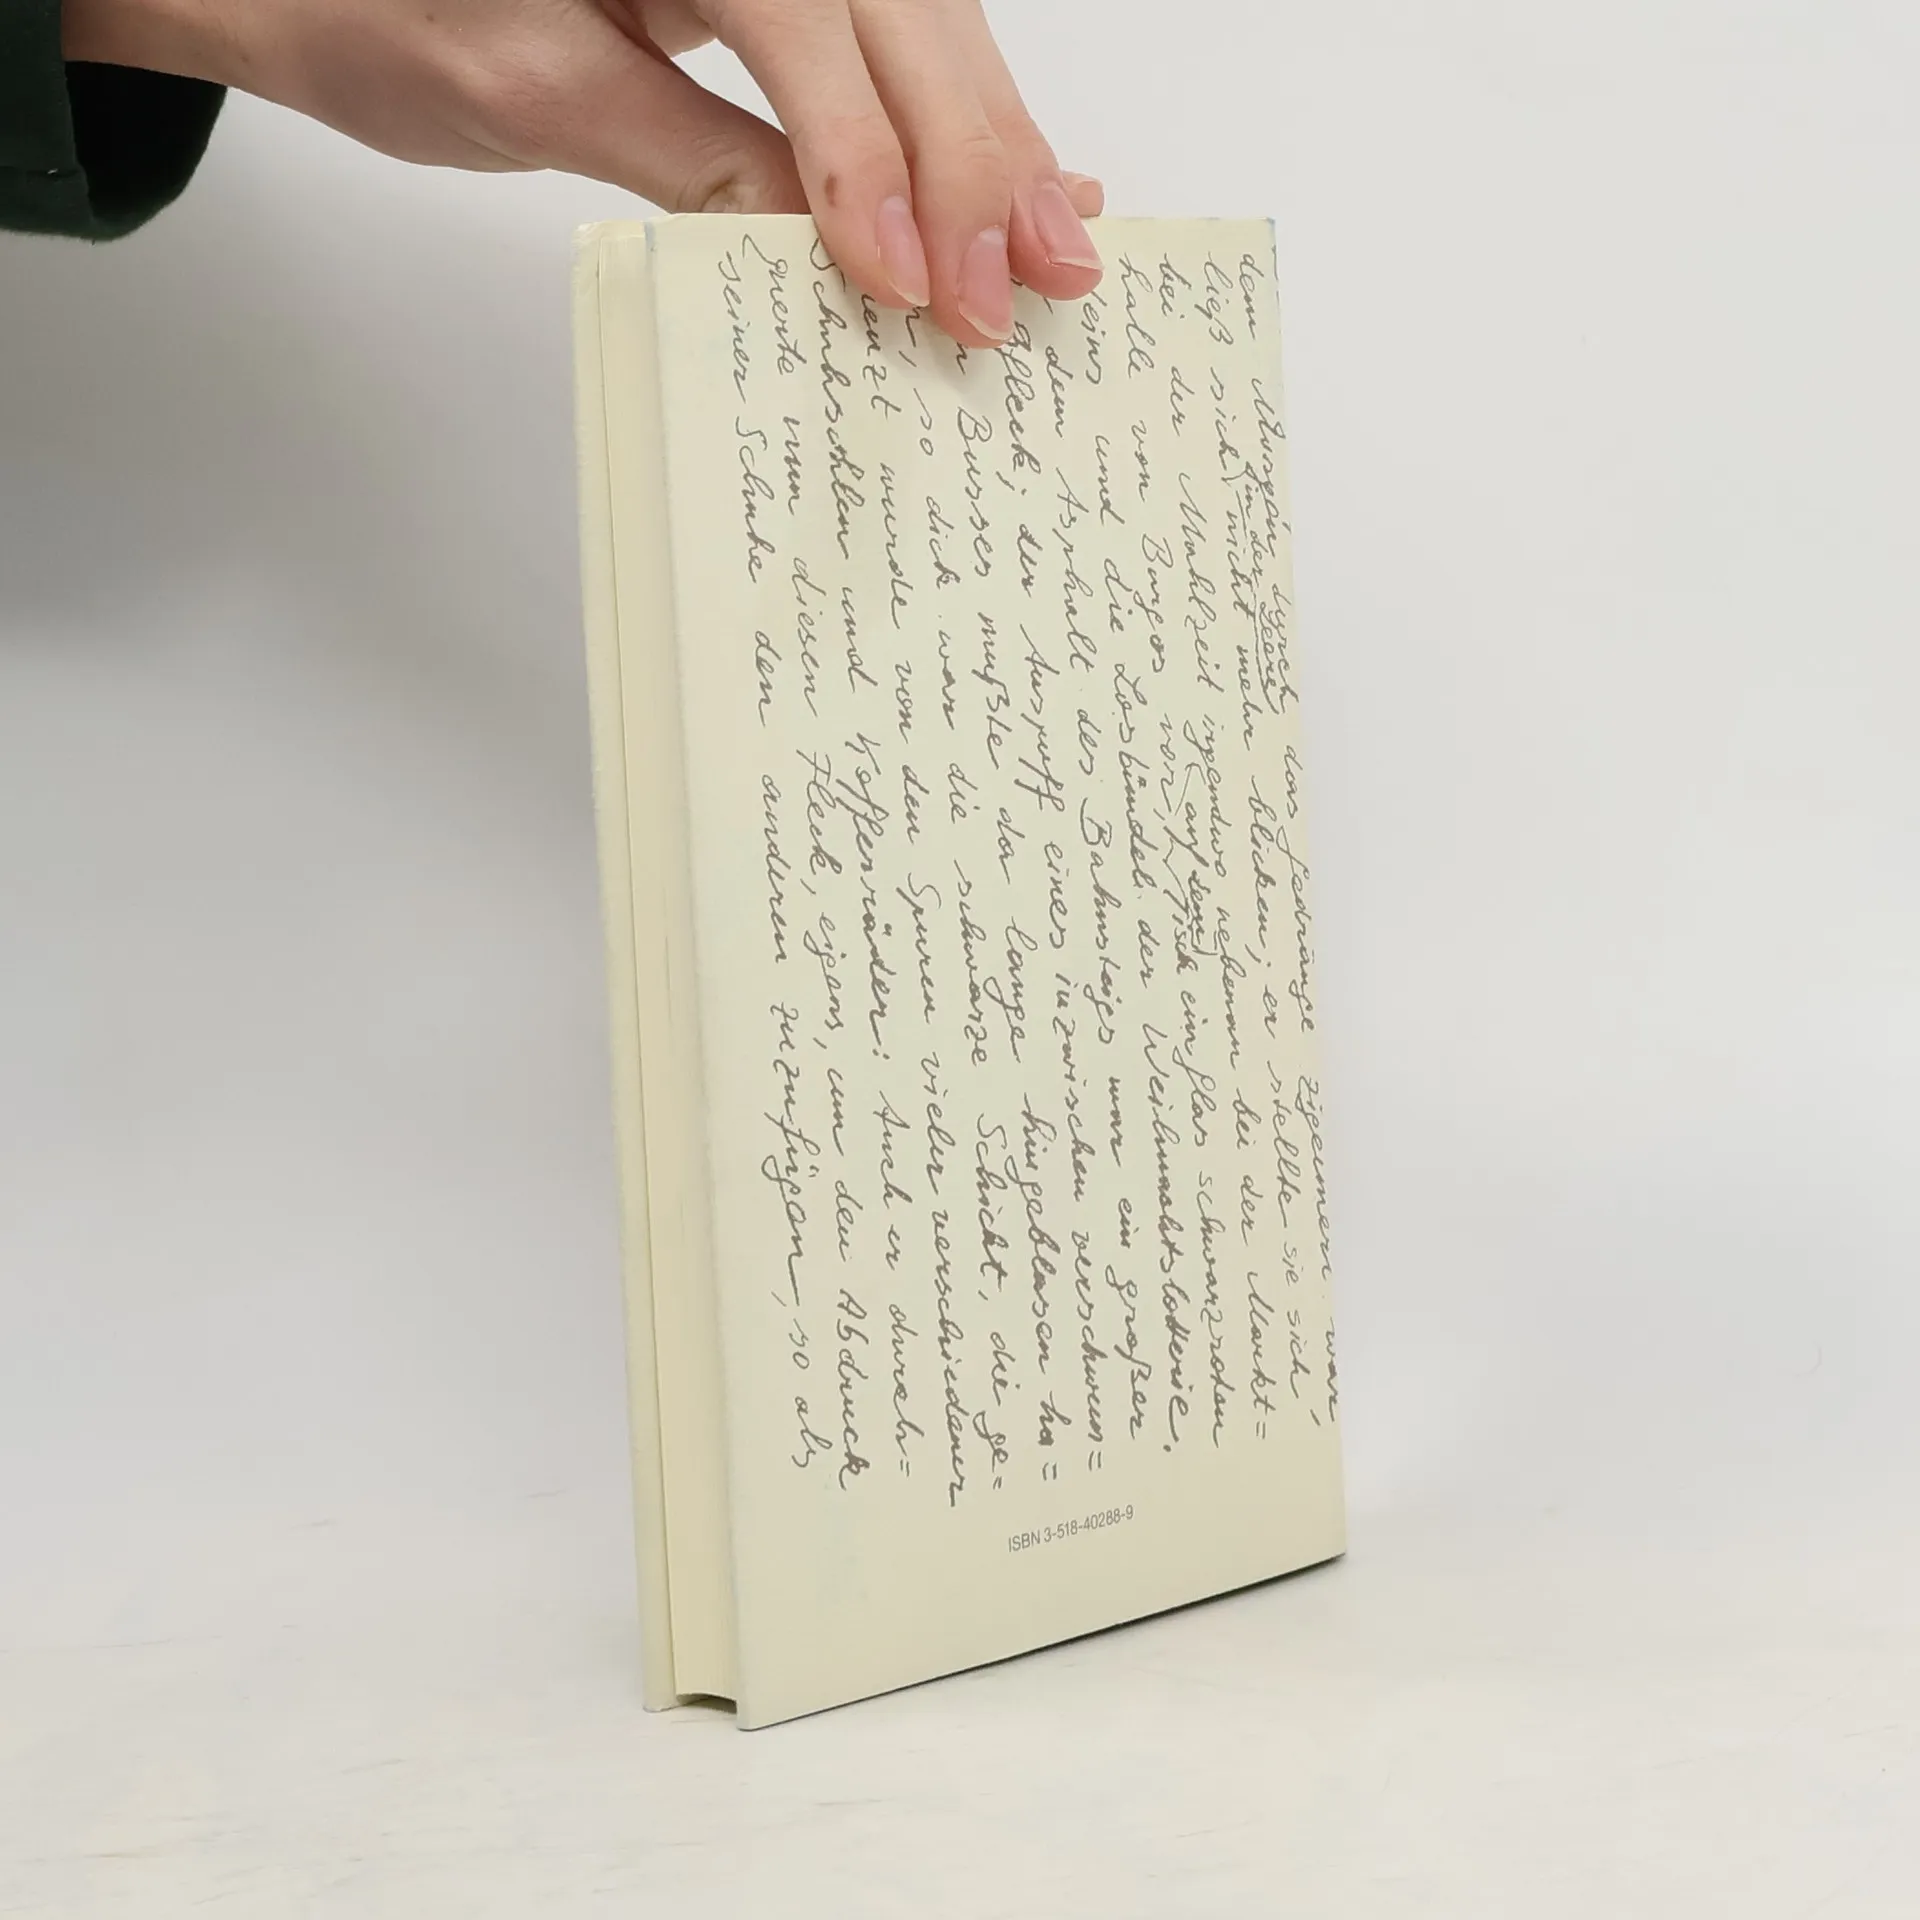 dem Morgen durch das Gedränge zigeunern war,
(in der Leere)
ließ sich nicht mehr blicken; er stellte sie sich,
bei der Mahlzeit irgendwo nebenan bei der Markt=
(auf dem)
halle von Burgos vor, Tisch ein Glas schwarzroten
eins und die Losbündel der Weihnachtslotterie.
dem Asphalt des Bahnsteigs war ein großer
fleck; der Auspuff eines inzwischen verschwun=
n Busses mußte da lange hingeblasen ha=
n, so dick war die schwarze Schicht, die ge=
enzt wurde von den Spuren vieler verschiedener
Schuhsohlen und Kofferräder: Auch er durch=
querte nun diesen Fleck, eigens, um den Abdruck
seiner Schuhe den anderen zuzufügen, so als
ISBN 3-518-40288-9